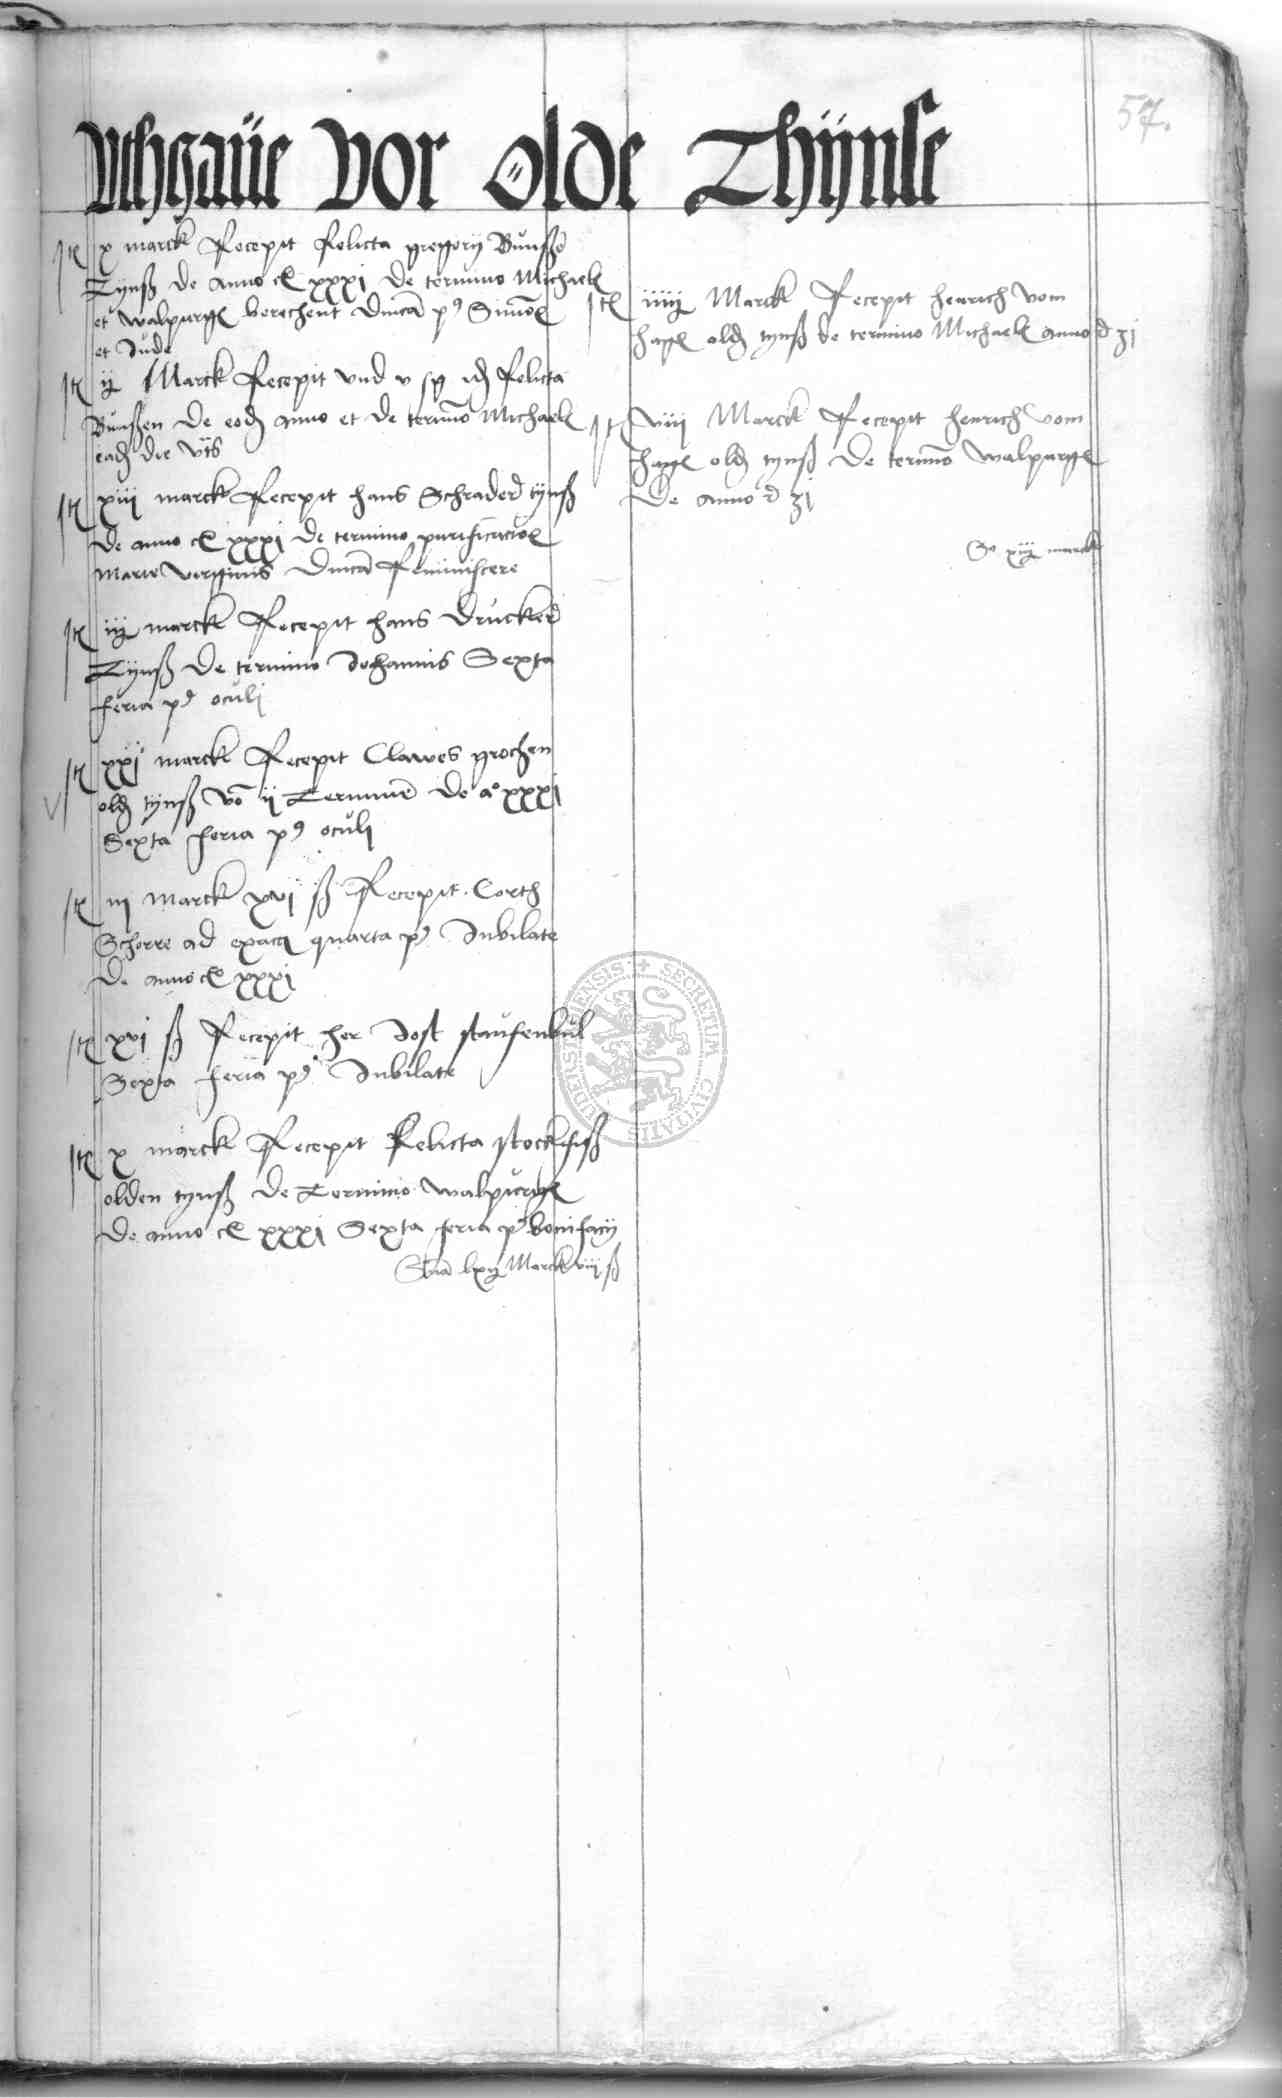 57.
Uthgaüe Vor Olde Thÿnse
Jt x marck Recepit Relicta gregorij Bunßen
Tynß de anno xxxi de termino Michael
et walpurg berechent p9 Simon
et Jude
Jt ij Marck Recepit vnd v Relicta
Bunßen de eod anno et de termino Michael
ead die vts
Jt xiij marck Recepit hans Schrader tynß
de anno xxxi de termino purificacio
Marie virginis Reminiscere
Jt iij marck Recepit hans Drucker
Tynß de termino Johannis Sexta
feria p9 oculi
Jt xxj marck Recepit Clawes grochen
old tynß vo ij Termine de ao xxxi
Sexta feria p9 oculi
Jt iij marck xvj ß Recepit Corth
Schorre ad quarta p9 Jubilate
de anno xxxj
Jt xvj ß Recepit her Jost staufenbül
Sexta feria p9 Jubilate
Jt x marck Recepit Relicta stockfisß
olden tynß de Termino walpurg
de anno xxxj Sexta feria p9 bonifacij
Sma lxij Marck viij ß
Jt iiij Marck Recepit henrich vom
hage old tynß de termino Michael anno 31
Jt viij Marck Recepit henrich vom
hage old tynß de termino walpurg
de anno 31
So xij marck
SECRETUM CIVITATIS DUDERSTADIENSIS